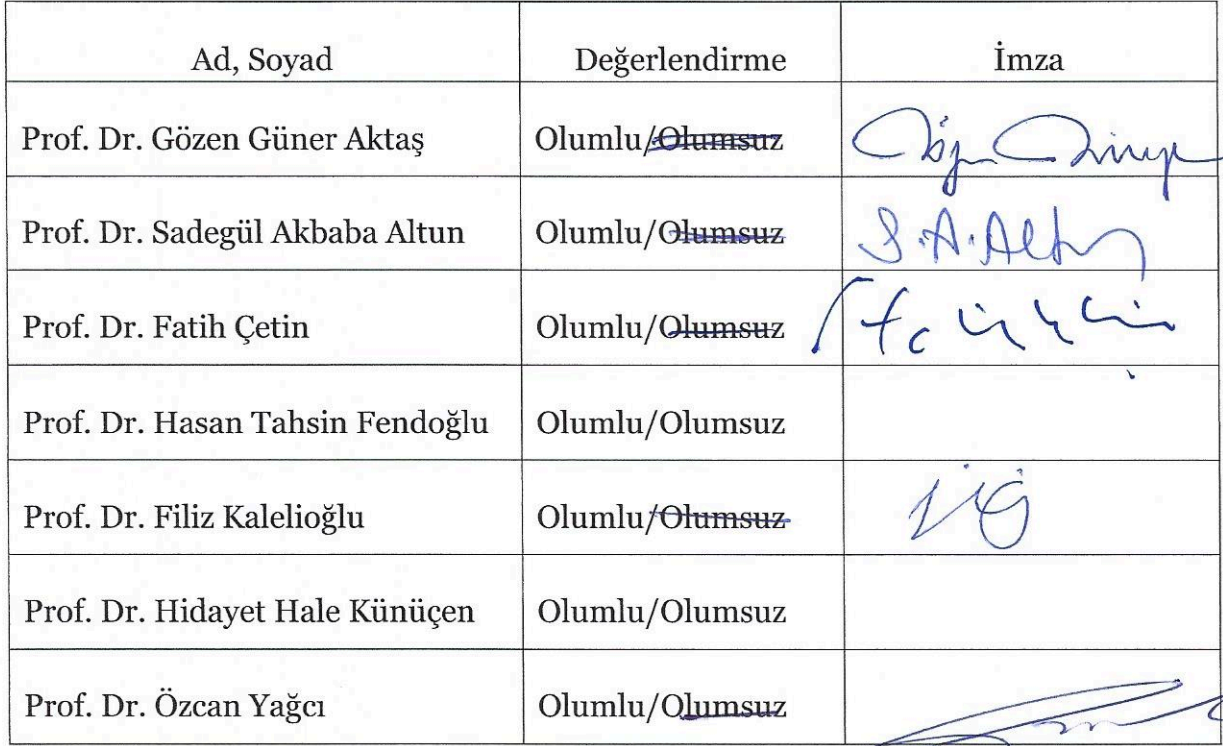 Ad, Soyad Değerlendirme İmza
Prof. Dr. Gözen Güner Aktaş Olumlu/Olumsuz
Prof. Dr. Sadegül Akbaba Altun Olumlu/Olumsuz S.A.Altun
Prof. Dr. Fatih Çetin Olumlu/Olumsuz
Prof. Dr. Hasan Tahsin Fendoğlu Olumlu/Olumsuz
Prof. Dr. Filiz Kalelioğlu Olumlu/Olumsuz
Prof. Dr. Hidayet Hale Künüçen Olumlu/Olumsuz
Prof. Dr. Özcan Yağcı Olumlu/Olumsuz